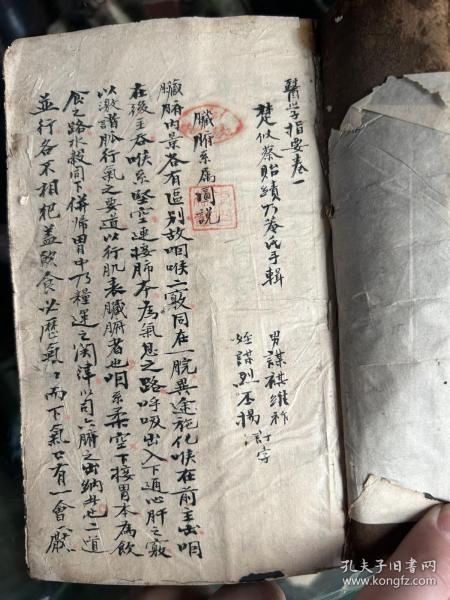 醫学指要卷一
楚攸蔡貽績乃菴氏手輯
男謀祺維祚
姪謀烈丕揚 訂字
臟腑系属圖説
臟腑内景各有區别故咽喉二竅同在一脘異途施化喉在前主出咽
在後主吞喉系堅空連接肺本為氣息之路呼吸出入下通心肝之竅
以激諸脈行氣之要道以行肌表臟腑者也咽系柔空下接胃本為飲
食之路水穀同下併歸胃中乃糧運之関津以司六腑之出納其也二道
並行各不相犯盖飲食必歷氣口而下氣口有一會厭
孔夫子旧书网
www.kongfz.com